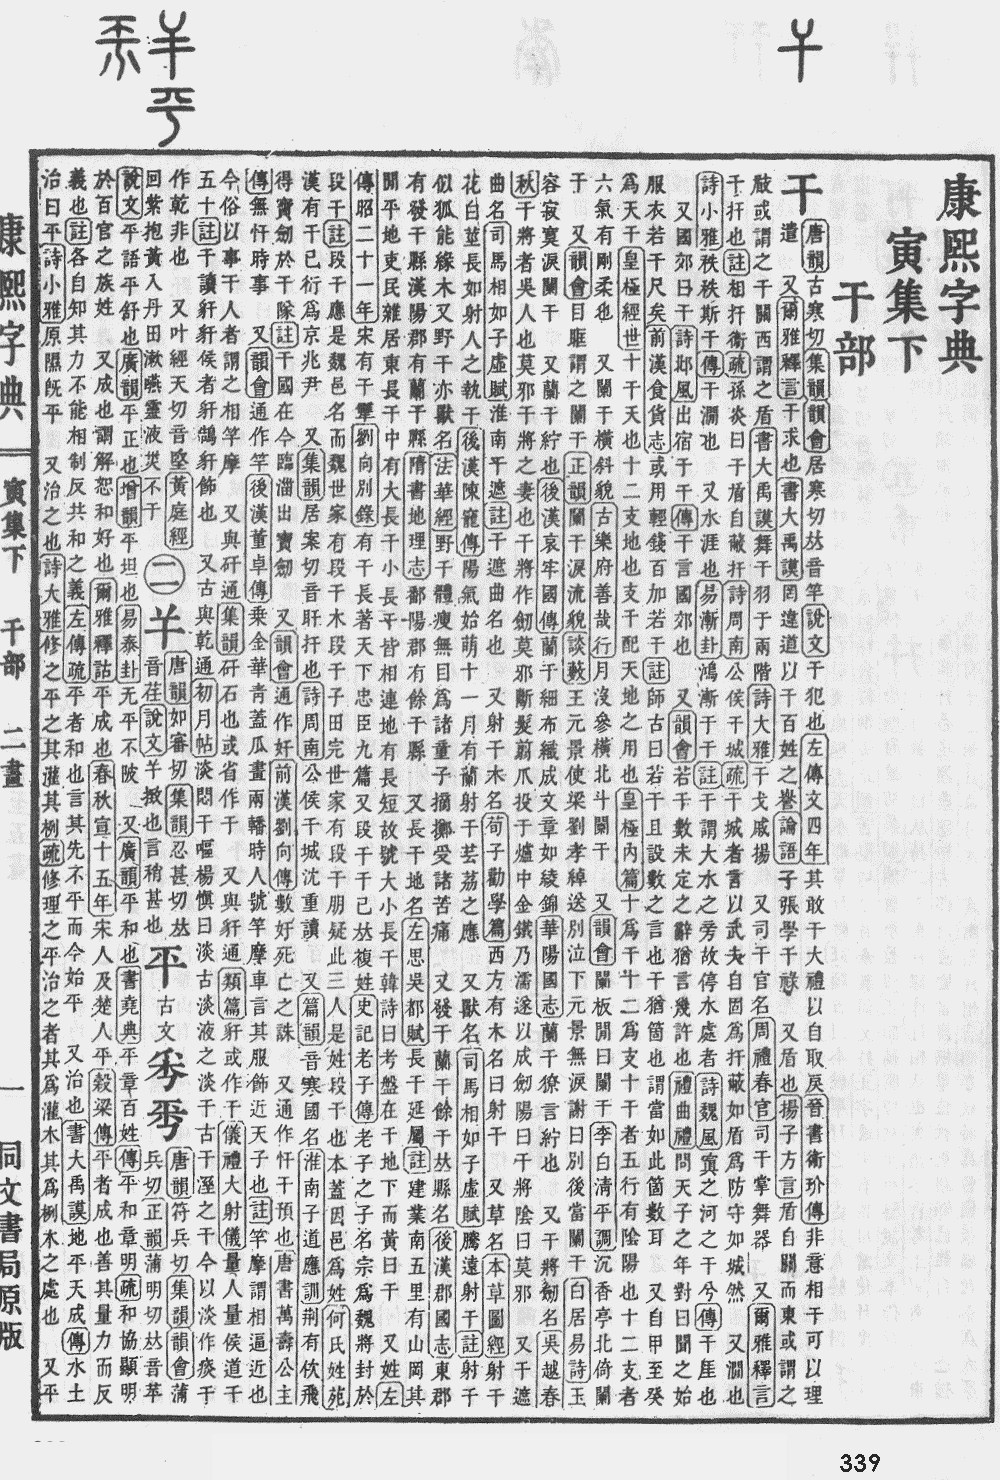 康熙字典
寅集下
干部
干
唐韻古寒切集韻韻會居寒切𠀤音竿說文干犯也左傳文四年其敢干大禮以自取戾晉書衛玠傳非意相干可以理
遣 又爾雅釋言干求也書大禹謨罔違道以干百姓之譽論語子張學干祿 又盾也揚子方言盾自關而東或謂之
瞂或謂之干關西謂之盾書大禹謨舞干羽于兩階詩大雅干戈戚揚 又司干官名周禮春官司干掌舞器 又爾雅釋言
干扞也註相扞衛疏孫炎曰干盾自蔽扞詩周南公侯干城疏干城者言以武夫自固爲扞蔽如盾爲防守如城然 又澗也
詩小雅秩秩斯干傳干澗也 又水涯也易漸卦鴻漸于干註干謂大水之旁故停水處者詩魏風寘之河之干今傳干厓也
又國郊曰干詩邶風出宿于干傳干言國郊也 又韻會若干數未定之辭猶言幾許也禮曲禮問天子之年對曰聞之始
服衣若干尺矣前漢食貨志或用輕錢百加若干註師古曰若干且設數之言也干猶箇也謂當如此箇數耳 又自甲至癸
爲天干皇極經世十干天也十二支地也支干配天地之用也皇極內篇十爲干十二爲支十干者五行有陰陽也十二支者
六氣有剛柔也 又闌干橫斜貌古樂府善哉行月沒參橫北斗闌干 又韻會闌板閒曰闌干李白淸平調沉香亭北倚闌
干 又韻會目眶謂之闌干正韻闌干淚流貌談藪王元景使梁劉孝綽送別泣下元景無淚謝曰別後當闌干白居易詩玉
容寂寞淚闌干 又蘭干紵也後漢哀牢國傳蘭干細布織成文章如綾錦華陽國志蘭干獠言紵也 又干將劒名吳越春
秋干將者吳人也莫邪干將之妻也干將作劒莫邪斷髮翦爪投于爐中金鐵乃濡遂以成劒陽曰干將陰曰莫邪 又干遮
曲名司馬相如子虛賦淮南干遮註干遮曲名也 又射干木名荀子勸學篇西方有木名曰射干 又草名本草圖經射干
花白莖長如射人之執干後漢陳寵傳陽氣始萌十一月有蘭射干芸荔之應 又獸名司馬相如子虛賦騰遠射干註射干
似狐能緣木 又野干亦獸名法華經野干體瘦無目爲諸童子摘擲受諸苦痛 又發干蘭干餘干𠀤縣名後漢郡國志東郡
有發干縣漢陽郡有蘭干縣隋書地理志鄱陽郡有餘干縣 又長干地名左思吳都賦長干延屬註建業南五里有山岡其
閒平地吏民雜居東長干中有大長干小長干皆相連地有長短故號大小長干韓詩曰考盤在干地下而黃曰干 又姓左
傳昭二十一年宋有干犨劉向別錄有干長著天下忠臣九篇 又段干干已𠀤複姓史記老子傳老子之子名宗爲魏將封於
段干註段干應是魏邑名而魏世家有段干木段干子田完世家有段干朋疑此三人是姓段干也本蓋因邑爲姓何氏姓苑
漢有干已衍爲京兆尹 又集韻居案切音旰扞也詩周南公侯干城沈重讀 又篇韻音寒國名淮南子道應訓荆有佽飛
得寶劍於干隊註干國在今臨淮出寶劒 又韻會通作奸前漢劉向傳數奸死亡之誅 又通作忓干預也唐書萬壽公主
傳無忓時事 又韻會通作竿後漢董卓傳乘金華靑蓋瓜畫兩轓時人號竿摩車言其服飾近天子也註竿摩謂相逼近也
今俗以事干人者謂之相竿摩 又與矸通集韻矸石也或省作干 又與豻通類篇豻或作干儀禮大射儀量人量侯道干
五十註干讀豻豻侯者豻鵠豻飾也 又古與乾通初月帖淡悶干嘔楊愼曰淡古淡液之淡干古干溼之干今以淡作痰干
作乾非也 又叶經天切音堅黃庭經
回紫抱黃入丹田漱嚥靈液災不干
二
𢆉
唐韻如審切集韻忍甚切𠀤
音荏說文𢆉撴也言稍甚也
平
古文
唐韻符兵切集韻韻會蒲
兵切正韻蒲明切𠀤音苹
說文平語平舒也廣韻平正也增韻平坦也易泰卦无平不陂 又廣韻平和也書堯典平章百姓傳平和章明疏和協顯明
於百官之族姓 又成也謂解恕和好也爾雅釋詁平成也春秋宣十五年宋人及楚人平穀梁傳平者成也善其量力而反
義也註各自知其力不能相制反共和之義左傳疏平者和也言其先不平而今始平 又治也書大禹謨地平天成傳水土
治曰平詩小雅原隰旣平 又治之也詩大雅修之平之其灌其栵疏修理之平治之者其爲灌木其爲栵木之處也 又平
康熙字典
寅集下 干部 二畫
一
同文書局原版
339